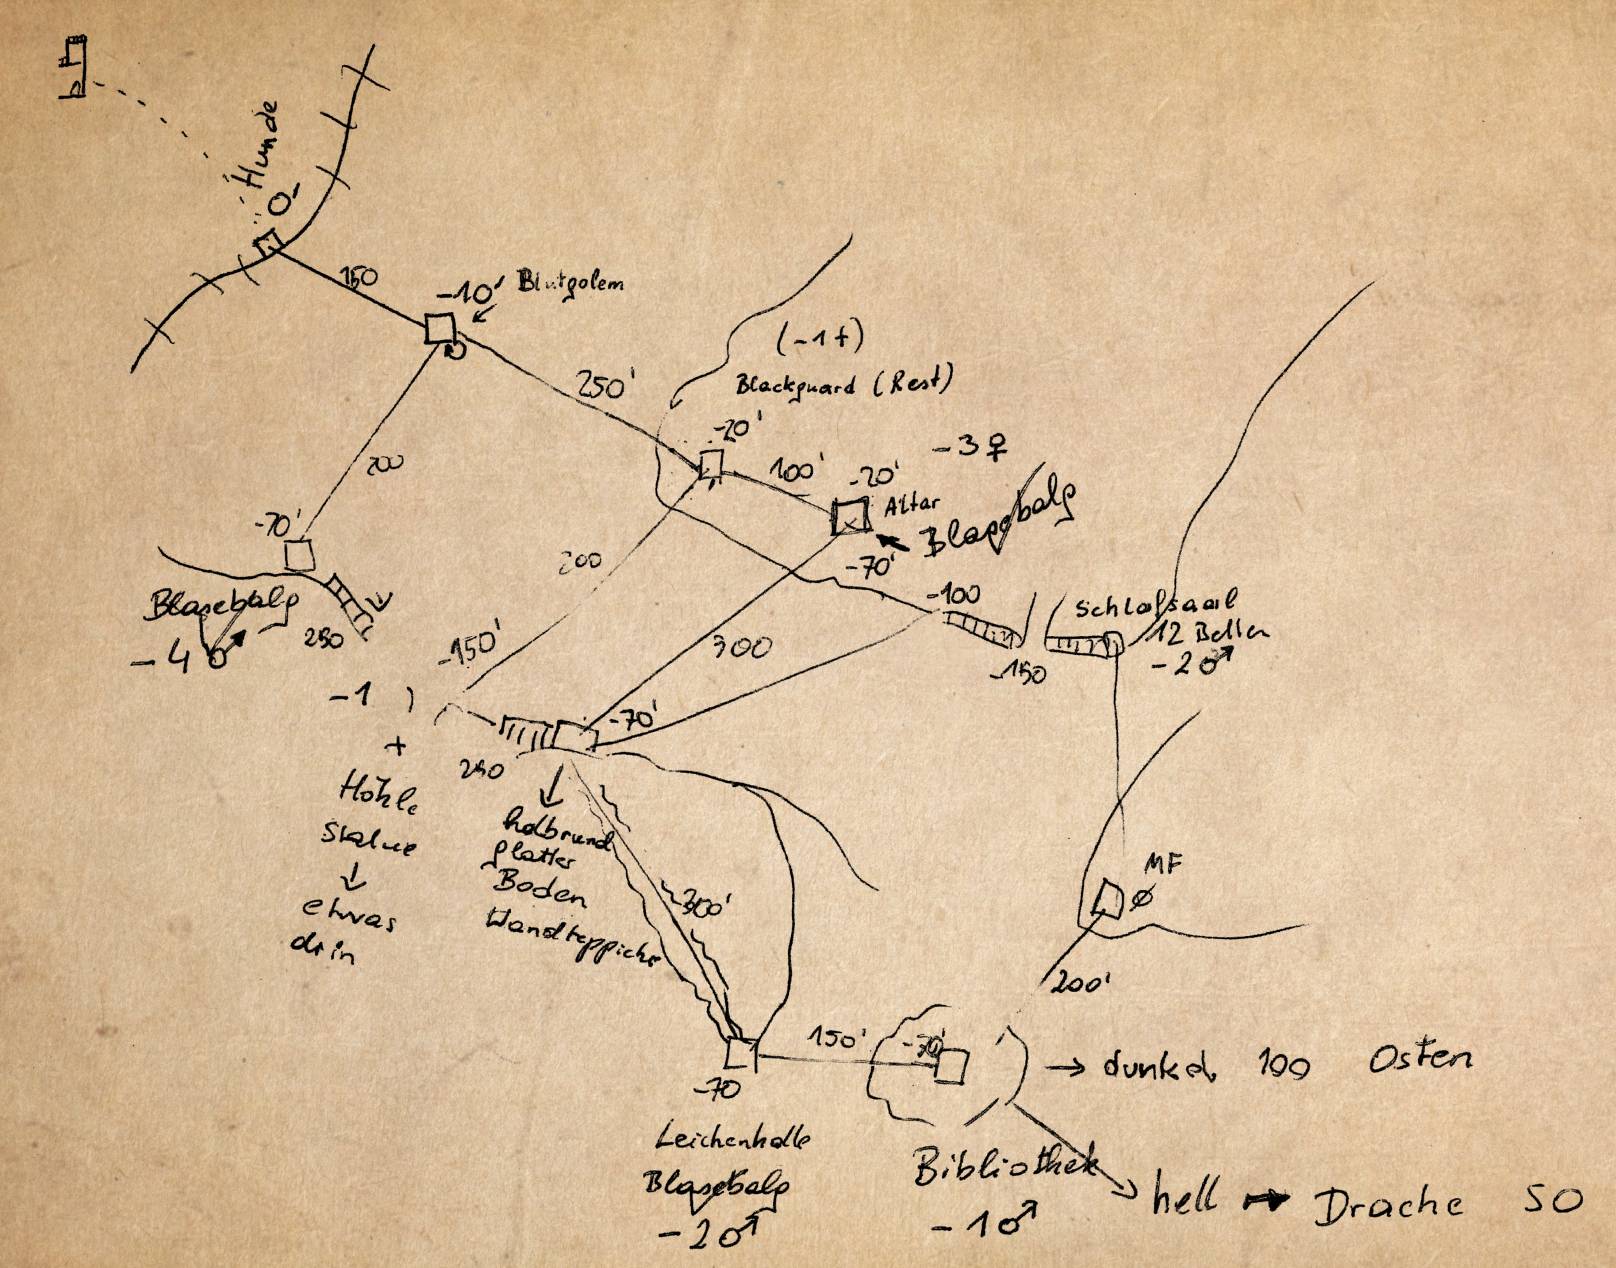 Hunde
150
-10'
Blutgolem
250'
(-1 +)
Blackguard (Rest)
-20'
100'
-20'
-3 ♀
Altar
Blasebalg
-70'
200
-70'
Blasebalg
-4 ♂
250
200
-150'
300
-100
-150
Schlafsaal
12 Betten
-2 ♂
-1
+
Höhle
Statue
↓
etwas
drin
-70'
250
↓
halbrund
glatter
Boden
Wandteppiche
300'
MF
200'
150'
-70'
→ dunkel 100 Osten
-70
Leichenhalle
Blasebalg
-2 ♂
Bibliothek
-1 ♂
hell → Drache SO